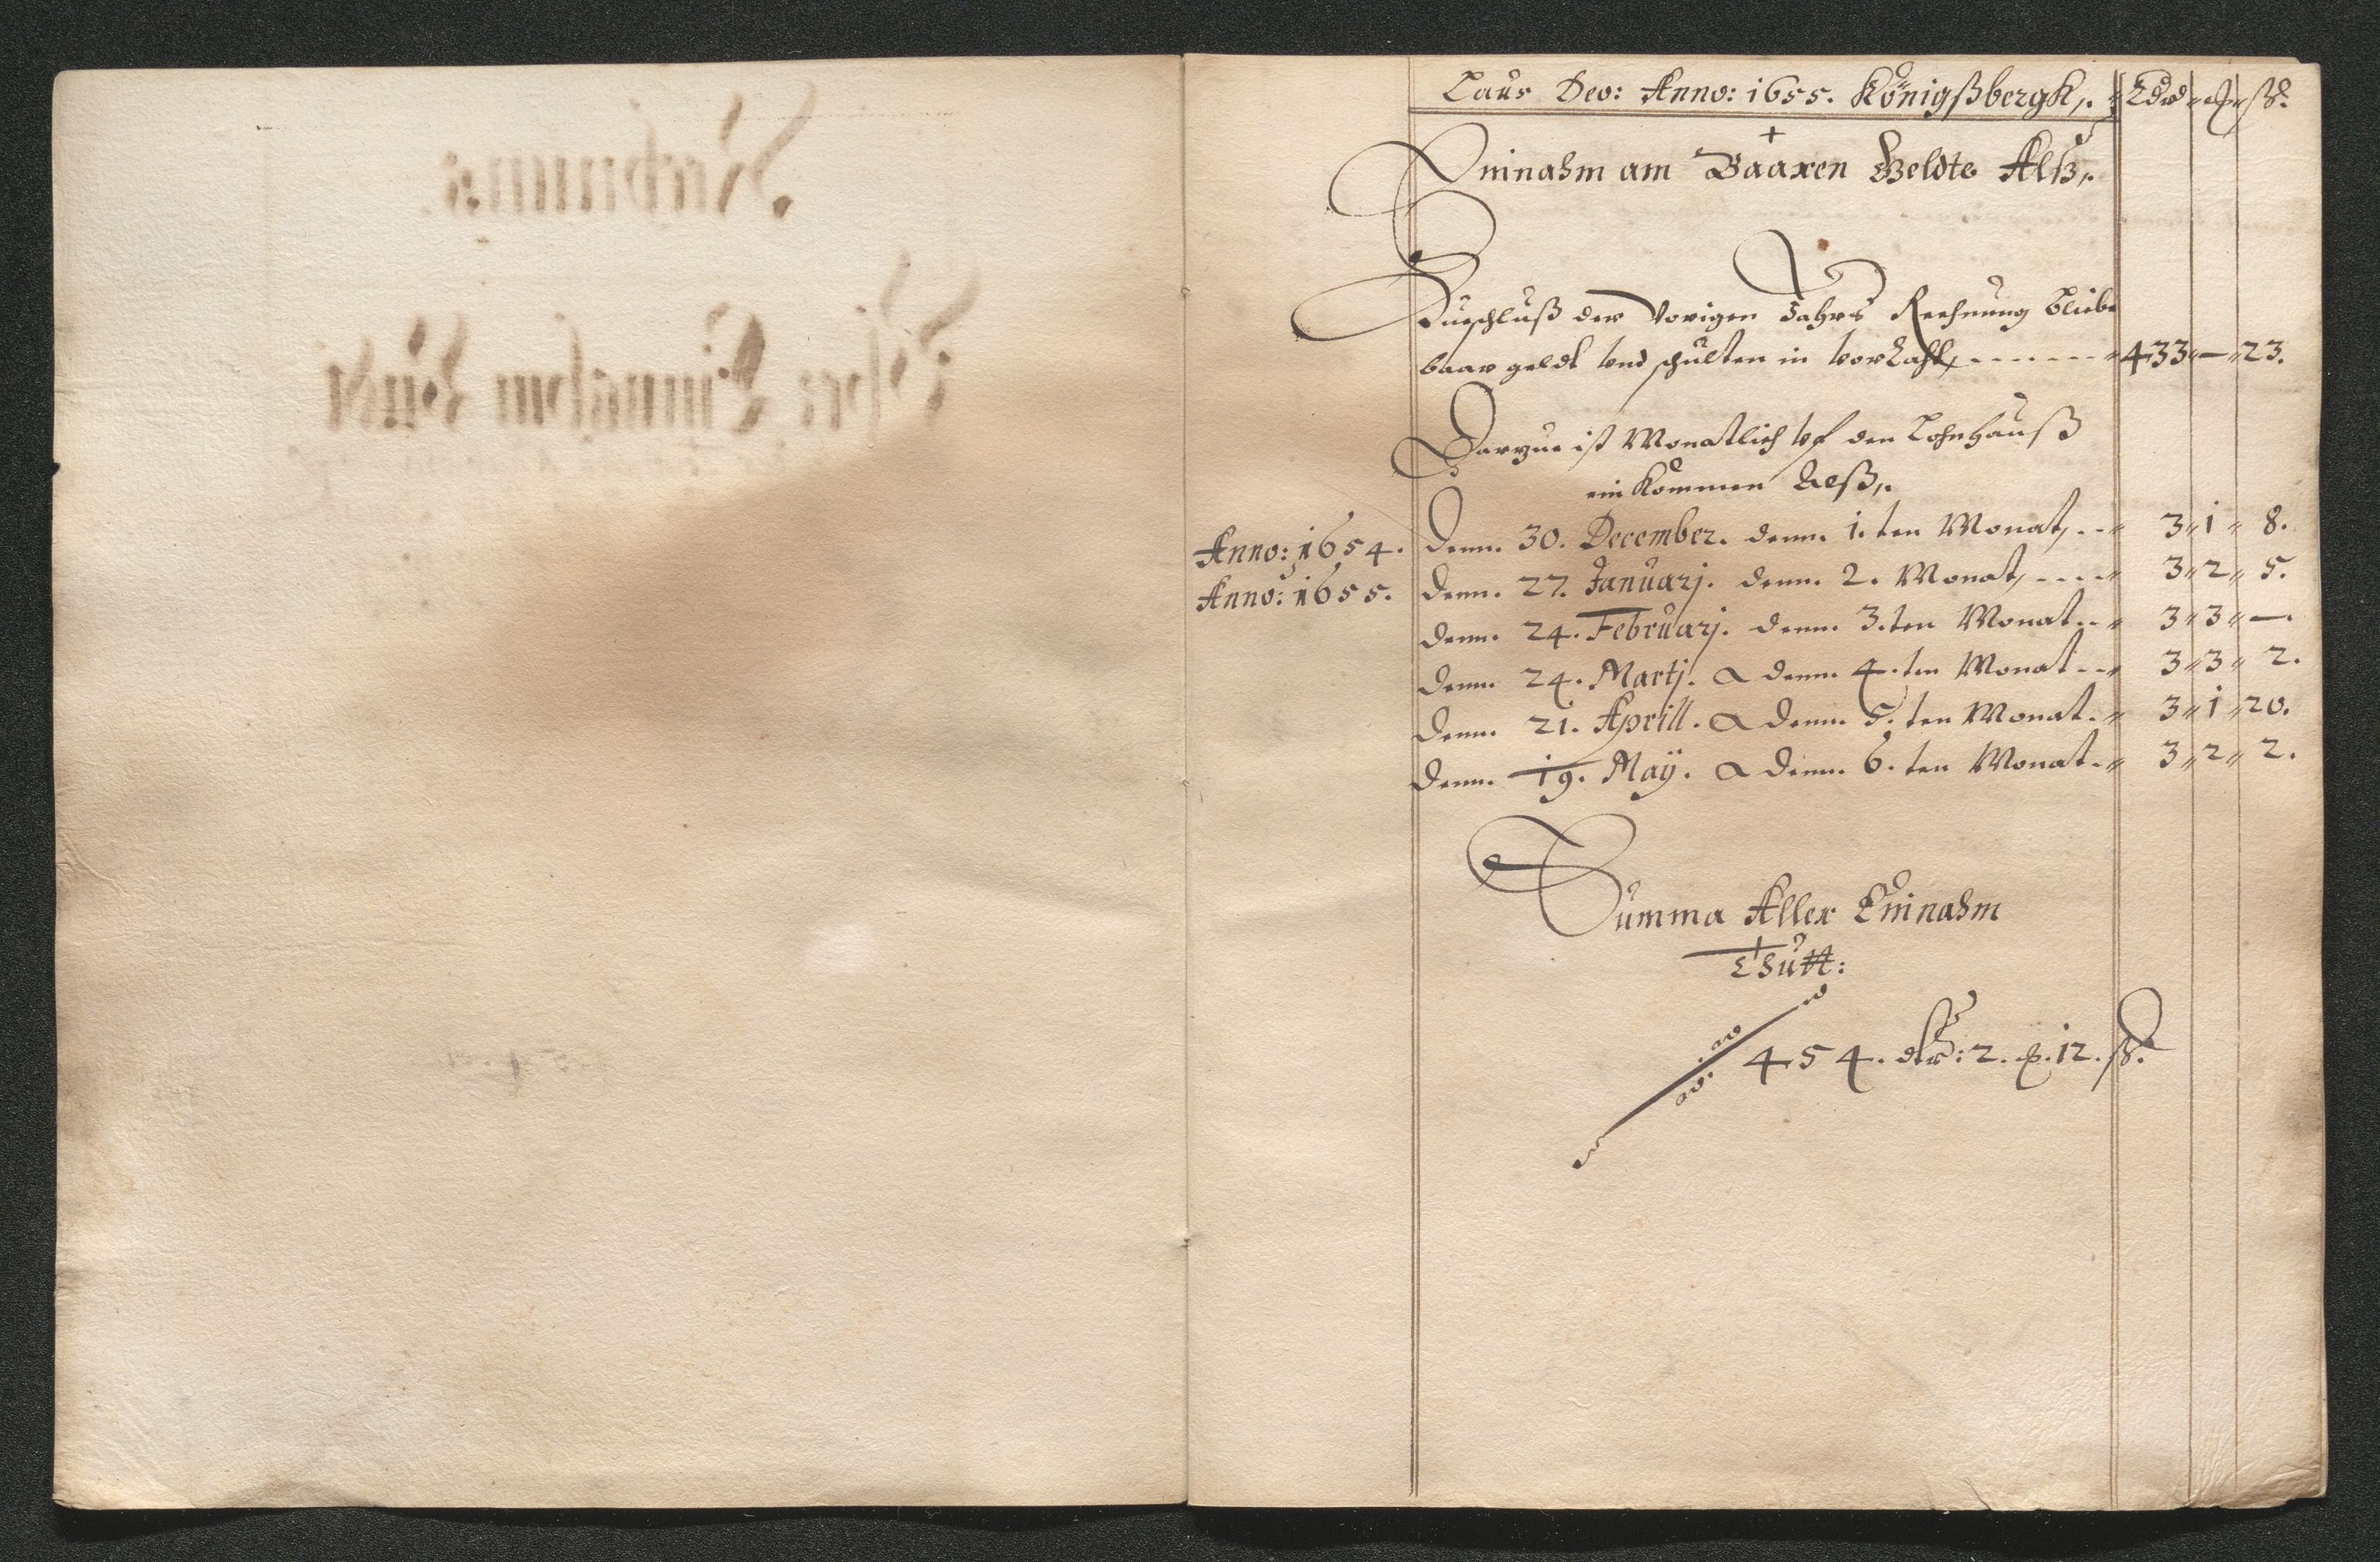 Laus Deo: Anno: 1655. Königßbergk,.
Einnahm am Baaren Geldte Alß,.
Zueschluß der Vorigen Jahrs Rechnung bliebe
baar geldt vnd schulten in vorRaht, 433 — 23.
Darzue ist Monatlich vf den Lohnhauß
ein kommen Alß,.
Anno: 1654. Denn. 30. December. denn. 1.ten Monat, 3 1 8.
Anno: 1655. Denn. 27. Januarj. denn. 2. Monat, 3 2 5.
Denn. 24. Februarj. denn. 3.ten Monat 3 3 —.
Denn. 24. Martj. a denn. 4.ten Monat 3 3 2.
Denn. 21. Aprill. a denn. 5.ten Monat 3 1 20.
Denn. 19. Maÿ. a denn. 6.ten Monat 3 2 2.
Summa Aller Einnahm
Thutt:
454. dlr: 2. 12. ß.